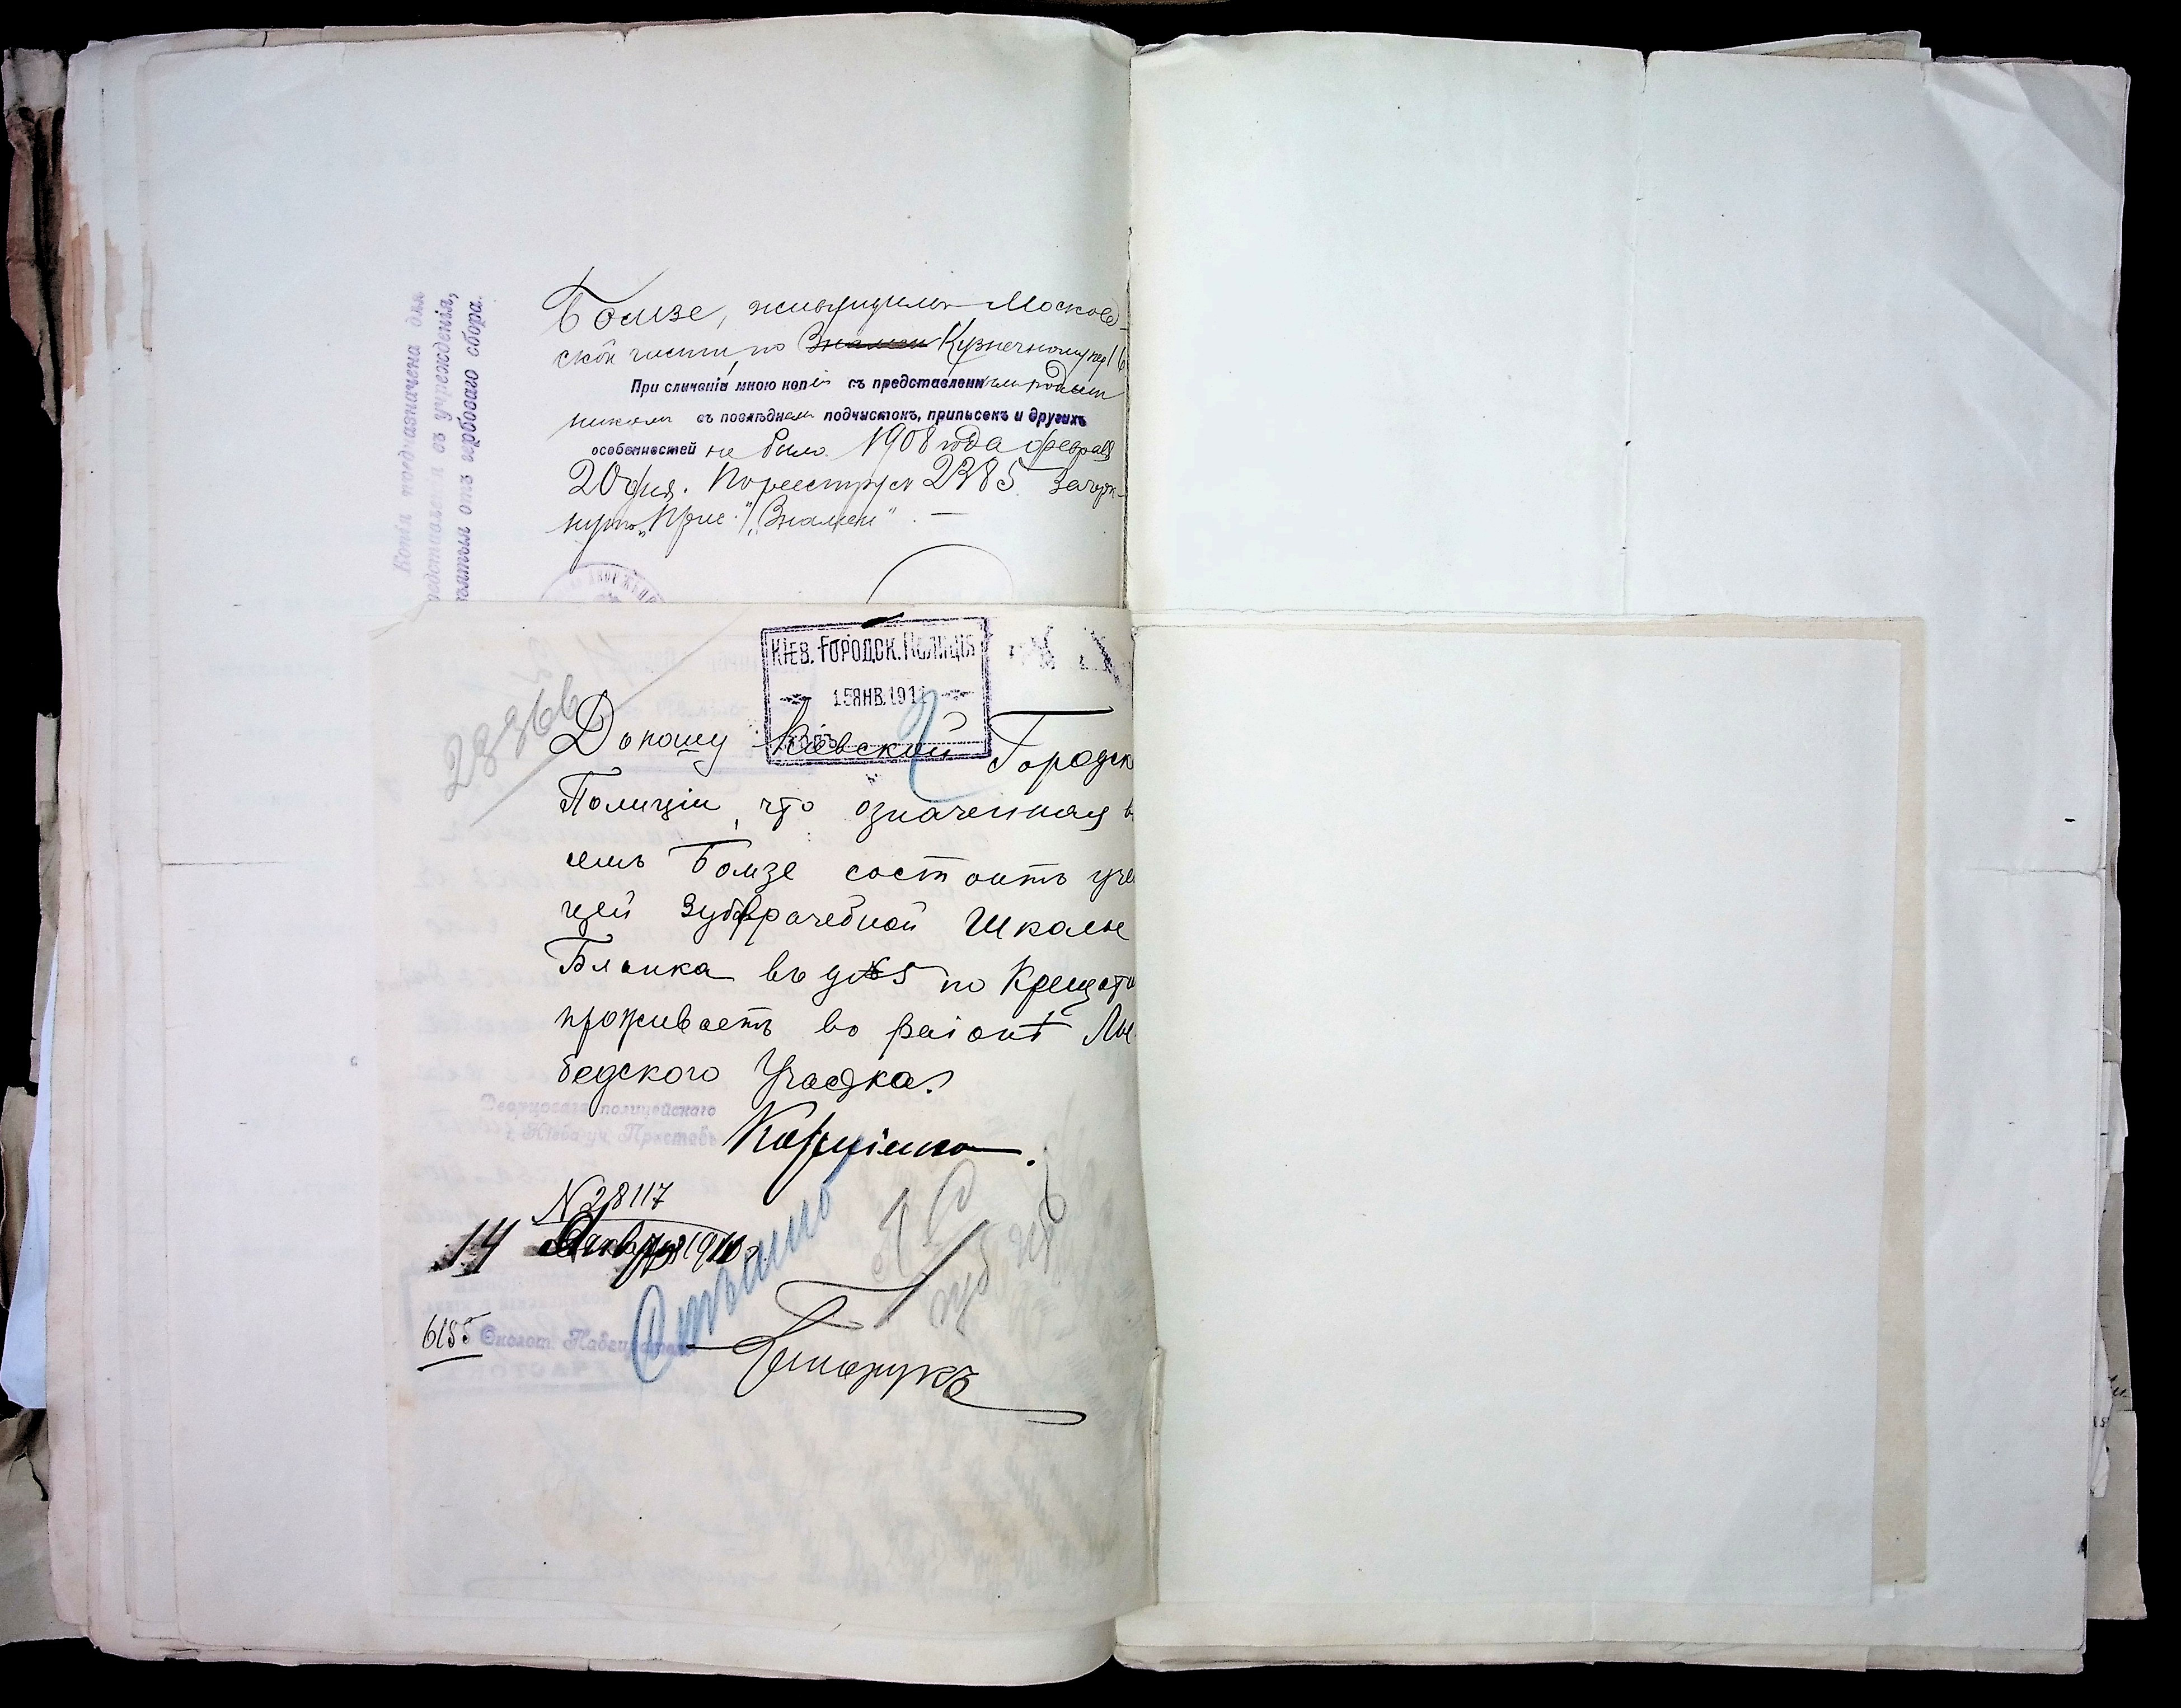 Копія предназначена для
представленія въ учрежденія,
изъятыя отъ гербоваго сбора.
Бомзе, жительницы Москов-
ской части, по Знамен Кузнечному пер
При сличеніи мною копіи съ представленнымъ подлин
никомъ въ послѣднемъ подчистокъ, приписекъ и другихъ
особенностей не было 1908 года Февраля
20 дня. По реестру № 2385. Зачерк-
нуто „Знамен“. —
КІЕВ. ГОРОДСК. ПОЛИЦІЯ
15 ЯНВ. 191
Доношу Кіевской Городск
Полиціи, что означенная в
семъ Бомзе состоитъ уча
щей Зубоврачебной Школы
Бланка въ д № 5 по Крещати
проживаетъ во раіонѣ Лы
бедского Участка.
Дворцоваго полицейскаго
г. Кіева уч. Приставъ
№ 28117
14 Января 1910 г.
6185 Околот. Надзиратель